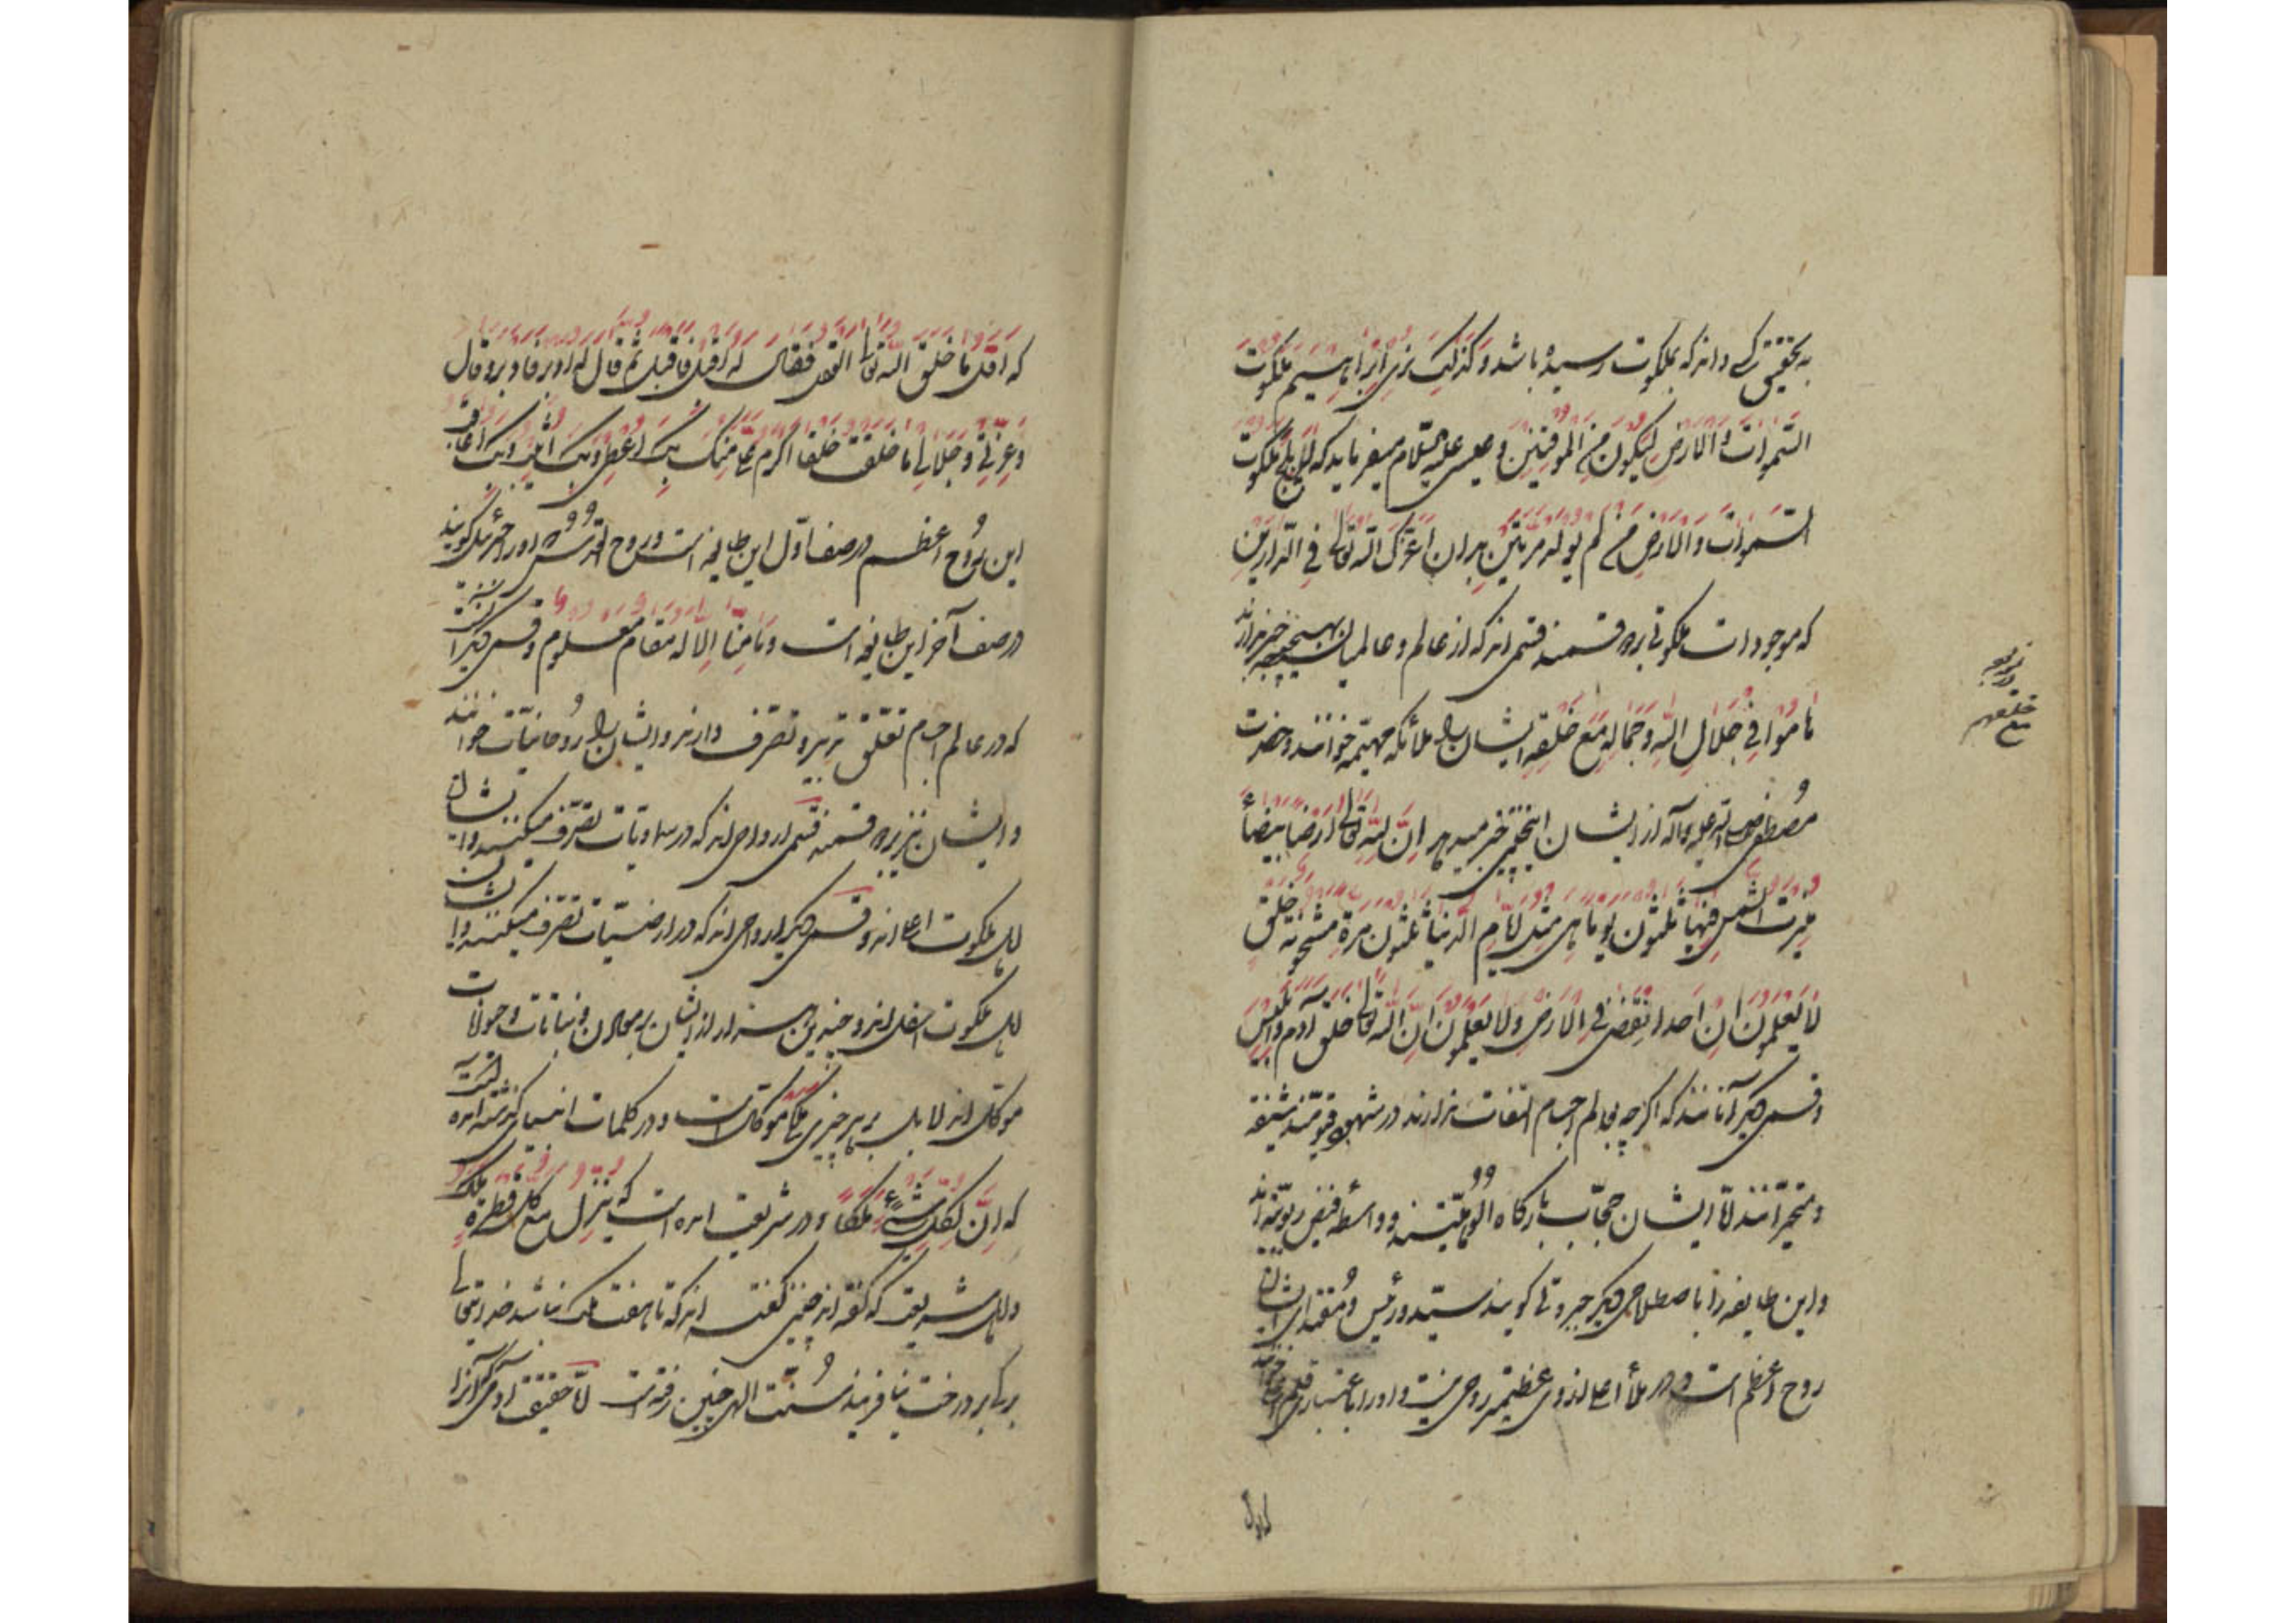 به تحقیق کسی داند که بملکوت رسیده باشد وَکَذلِکَ نُرِی اِبْراهِیمَ مَلَکُوتَ
السَّمواتِ وَالاَرضِ لِیَکُونَ مِنَ المُوقِنینَ و عیسی علیه السّلام میفرماید که لا یَلِجُ مَلَکُوتَ
السَّمواتِ وَالاَرضِ مَنْ لَم یُولَد مَرَّتَینِ بدان اعزّک الله تعالی فِی الدّارَینِ
که موجودات ملکوتی بر دو قسمند قسمی اند که از عالم و عالمیان بهیچ وجه خبر ندارند
هامُوا فِی جَلالِ اللهِ وَجَمالِهِ مَعَ خَلقِهِ ایشان را ملائکه مهیّمه خوانند و حضرت
مُصطفی صلی الله علیه وآله از ایشان اینچنین خبر میدهد اِنَّ لِلّهِ تَعالی اَرضاً بَیضاءَ
مَسِیرَتُ الشَّمسِ فِیها ثَلثُونَ یَوماً هِیَ مِثلُ اَیّامِ الدُّنیا ثَلثُونَ مَرَّةً مَشحُونَةً خَلق
لا یَعلَمُونَ اَنَّ اَحداً نقض فِی الاَرضِ وَلا یَعلَمُونَ اَنَّ اللهَ تَعالی خَلَقَ آدَمَ وَاِبلِیسَ
و قسمی دیگر آنانند که اگر چه بعالم اجسام التفات ندارند در شهود قیومیت شیفته
و متحیرانند امّا ایشان حجّاب بارگاه اُلُوهیّتند و واسطه فیض ربوبیّت اند
و این طایفه را باصطلاحی دیگر جبروتی گویند سیّد و رئیس و مُقتدای ایشان
روح اعظم است و در ملأ اعلی از وی عظیمتر روحی نیست و او را باعتباری قلم خوانند
کاول
مع
خلقهم
که اَوَّلَ ما خَلَقَ اللهُ تَعالی القَلَمُ فَقالَ لَهُ اَقبِل فَاَقبَلَ ثُمَّ قالَ لَهُ اَدبِر فَاَدبَرَ وَقالَ
وَعِزَّتِی وَجَلالِی ما خَلَقتُ خَلقاً اَکرَمَ عَلَیَّ مِنکَ بِکَ اُعطِی وَبِکَ اُثِیبُ وَبِکَ اُعاقِبُ
این رُوح اعظم در صف اوّل این طایفه است و روح القدس که او را جبرئیل گویند
در صف آخر این طایفه است وَما مِنّا اِلّا لَهُ مَقامٌ مَعلُومٌ و قسمی دیگر آنست
که در عالم اجسام تعلّق تدبیر و تصرّف دارند و ایشان را رُوحانیّات خوانند
و ایشان نیز بر دو قسمند قسمی ارواحی اند که در سماویات تصرّف میکنند و ایشان
اهل ملکوت اعلی اند و قسمی دیگر ارواحی اند که در ارضیّات تصرّف میکنند و ایشان
اهل ملکوت اسفل اند و چندین هزار از ایشان بر معادن و نباتات و حیوانات
موکّل اند لا بل بر هر چیزی ملکی موکّل است و در کلمات انبیای گذشته آمده است
که اِنَّ لِکُلِّ شَیءٍ مَلَکاً و در شریعت آمده است که یَنزِلُ مَعَ کُلِّ قَطرَةٍ مَلَکٌ
و اهل شریعت که گفته اند چنین گفته اند که تا هفت ملک نباشد خدایتعالی
برگی بر درخت نیافریند سُنّت الهی چنین رفته است امّا حقیقت آدمی که آنرا